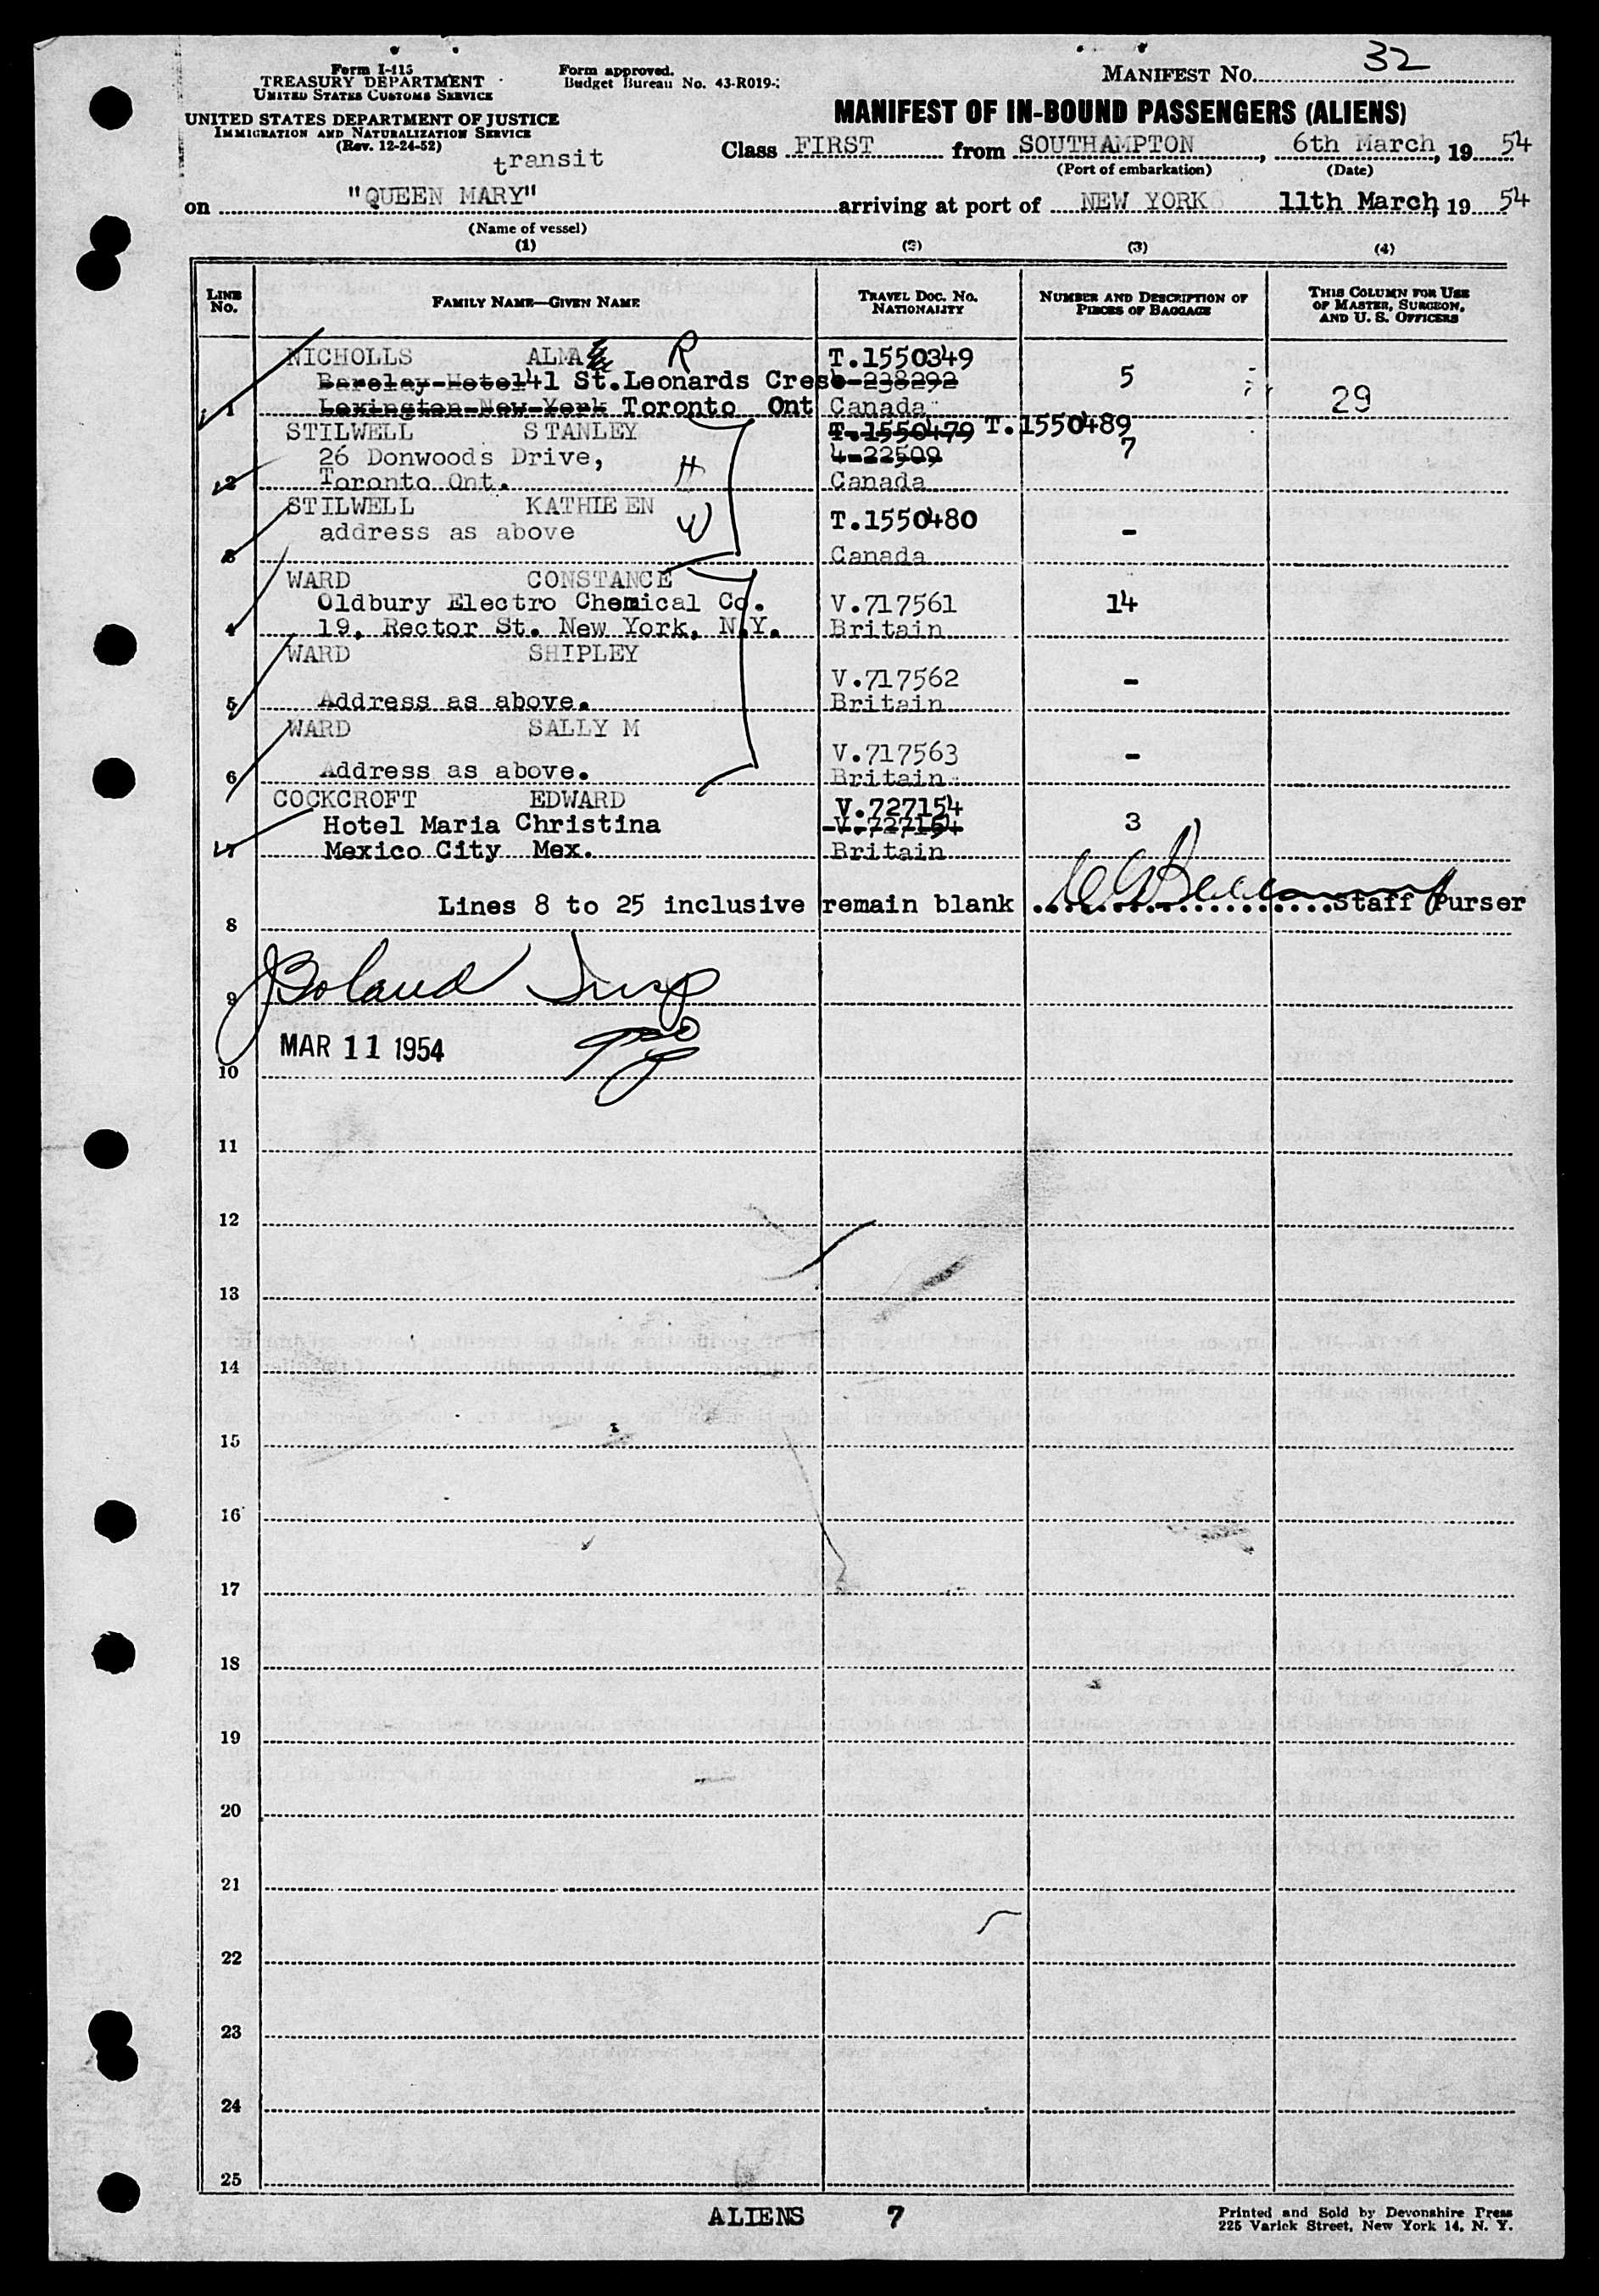 Form I-115
TREASURY DEPARTMENT
UNITED STATES CUSTOMS SERVICE
UNITED STATES DEPARTMENT OF JUSTICE
IMMIGRATION AND NATURALIZATION SERVICE
(Rev. 12-24-52)
Form approved.
Budget Bureau No. 43-R019-
MANIFEST NO. 32
MANIFEST OF IN-BOUND PASSENGERS (ALIENS)
transit
Class FIRST from SOUTHAMPTON, 6th March, 19 54
(Port of embarkation) (Date)
on "QUEEN MARY" arriving at port of NEW YORK 11th March, 19 54
(Name of vessel)
(1) (2) (3) (4)
LINE NO. FAMILY NAME—GIVEN NAME TRAVEL DOC. NO. NATIONALITY NUMBER AND DESCRIPTION OF PIECES OF BAGGAGE THIS COLUMN FOR USE OF MASTER, SURGEON, AND U. S. OFFICERS
NICHOLLS ALMA R T.1550349
Barclay Hotel 41 St.Leonards Cres 4-238292 5
1 Lexington New York Toronto Ont Canada 29
STILWELL STANLEY T.1550479 T.1550489
26 Donwoods Drive, H 4-22509 7
2 Toronto Ont. Canada
STILWELL KATHIE EN
address as above W T.1550480 -
3 Canada
WARD CONSTANCE
Oldbury Electro Chemical Co. V.717561 14
4 19, Rector St. New York, N.Y. Britain
WARD SHIPLEY
V.717562 -
5 Address as above. Britain
WARD SALLY M
V.717563 -
6 Address as above. Britain
COCKCROFT EDWARD V.727154
Hotel Maria Christina V.727164 3
7 Mexico City Mex. Britain
Lines 8 to 25 inclusive remain blank ....................Staff Purser
8
9 Boland Insp
MAR 11 1954
10
11
12
13
14
15
16
17
18
19
20
21
22
23
24
25
ALIENS 7
Printed and Sold by Devonshire Press
225 Varick Street, New York 14, N. Y.